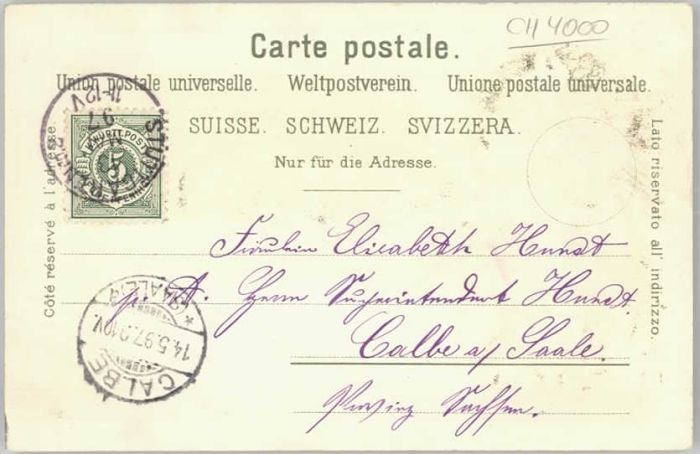 CH 4000
Carte postale.
Union postale universelle. Weltpostverein. Unione postale universale.
SUISSE. SCHWEIZ. SVIZZERA.
Nur für die Adresse.
Côté réservé à l'adresse.
Lato riservato all' indirizzo.
K.WÜRTT.POST
5
97
11-12V
Fräulein Elisabeth Hundt
p. A. Herrn Superintendent Hundt.
Calbe a/ Saale.
Provinz Sachsen.
CALBE
14.5.97.9-10V.
*(SAALE)*